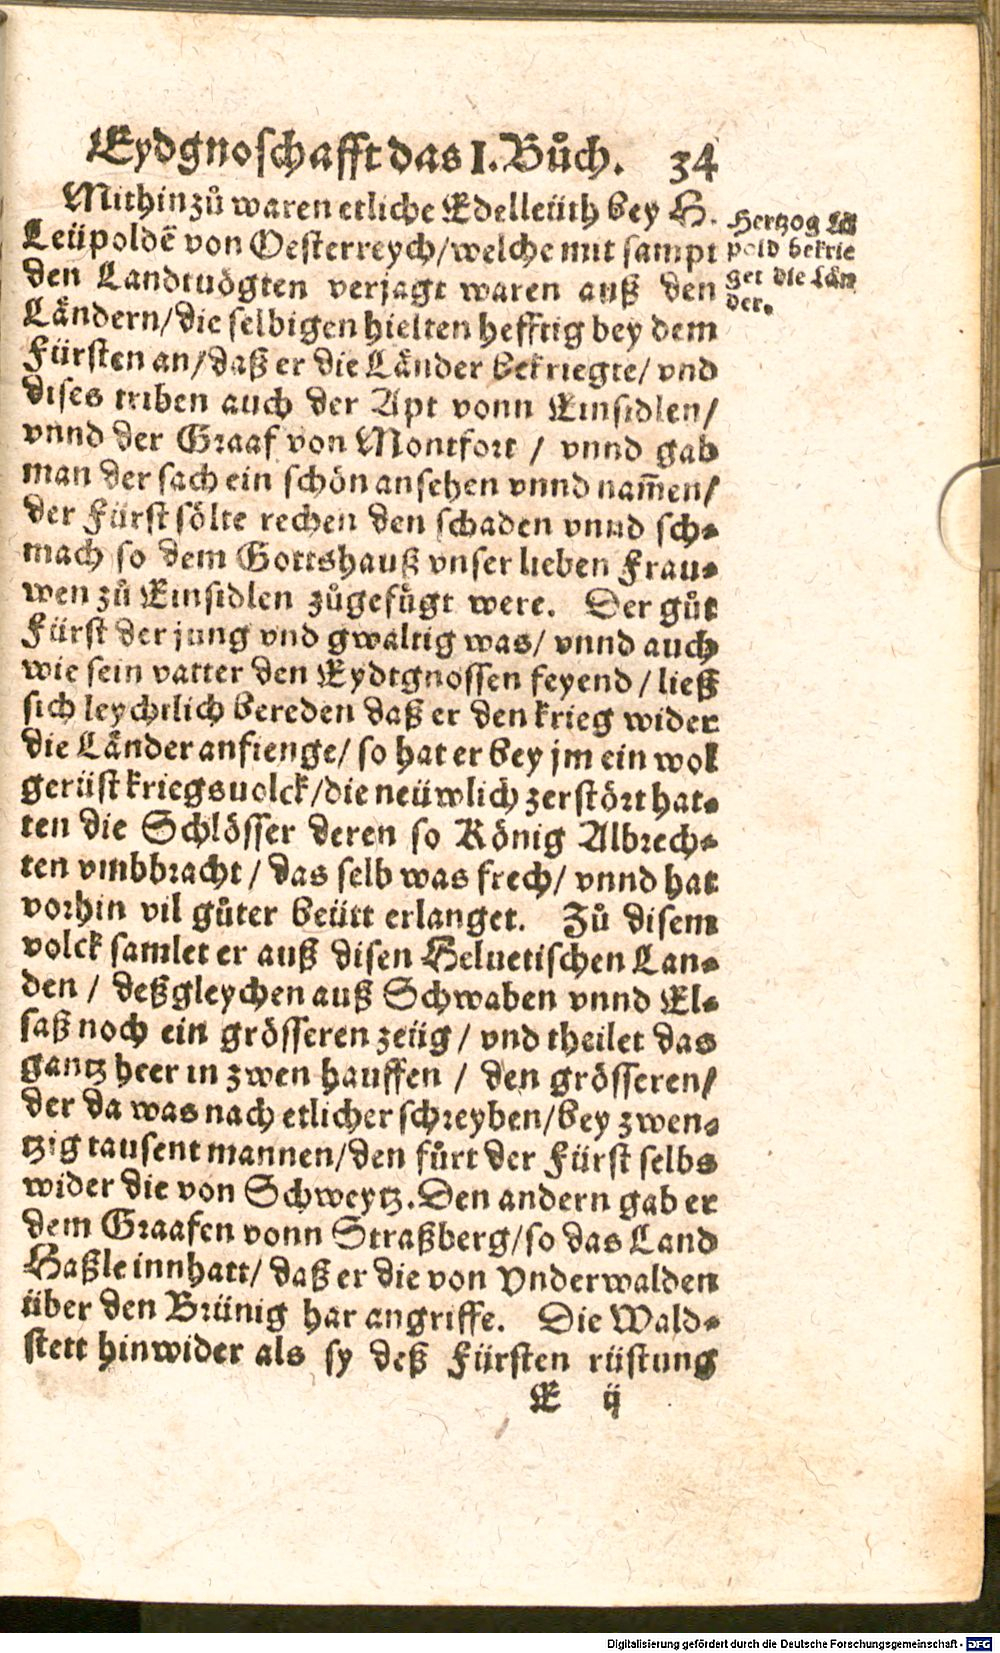 Eydgnoschafft das I. Bůch. 34
Mithinzů waren etliche Edelleüth bey H.
Leüpoldē von Oesterreych/welche mit sampt
den Landtuögten verjagt waren auß den
Ländern/die selbigen hielten hefftig bey dem
Fürsten an/daß er die Länder bekriegte/ vnd
dises triben auch der Apt vonn Einsidlen/
vnnd der Graaf von Montfort / vnnd gab
man der sach ein schön ansehen vnnd nam̃en/
der Fürst sölte rechen den schaden vnnd sch-
mach so dem Gottshauß vnser lieben Frau-
wen zů Einsidlen zůgefügt were. Der gůt
Fürst der jung vnd gwaltig was/ vnnd auch
wie sein vatter den Eydtgnossen feyend / ließ
sich leychtlich bereden daß er den krieg wider
die Länder anfienge/ so hat er bey jm ein wol
gerüst kriegsuolck/die neüwlich zerstört hat-
ten die Schlösser deren so König Albrech-
ten vmbbracht / das selb was frech/ vnnd hat
vorhin vil gůter beütt erlanget. Zů disem
volck samlet er auß disen Heluetischen Lan-
den / deßgleychen auß Schwaben vnnd El-
saß noch ein grösseren zeüg / vnd theilet das
gantz heer in zwen hauffen / den grösseren/
der da was nach etlicher schreyben/bey zwen-
tzig tausent mannen/den fůrt der Fürst selbs
wider die von Schweytz. Den andern gab er
dem Graafen vonn Straßberg/so das Land
Haßle innhatt/ daß er die von Vnderwalden
über den Brünig har angriffe. Die Wald-
stett hinwider als sy deß Fürsten rüstung
E ij
Hertzog Lü
pold bekrie
get die Län
der.
Digitalisierung gefördert durch die Deutsche Forschungsgemeinschaft - DFG